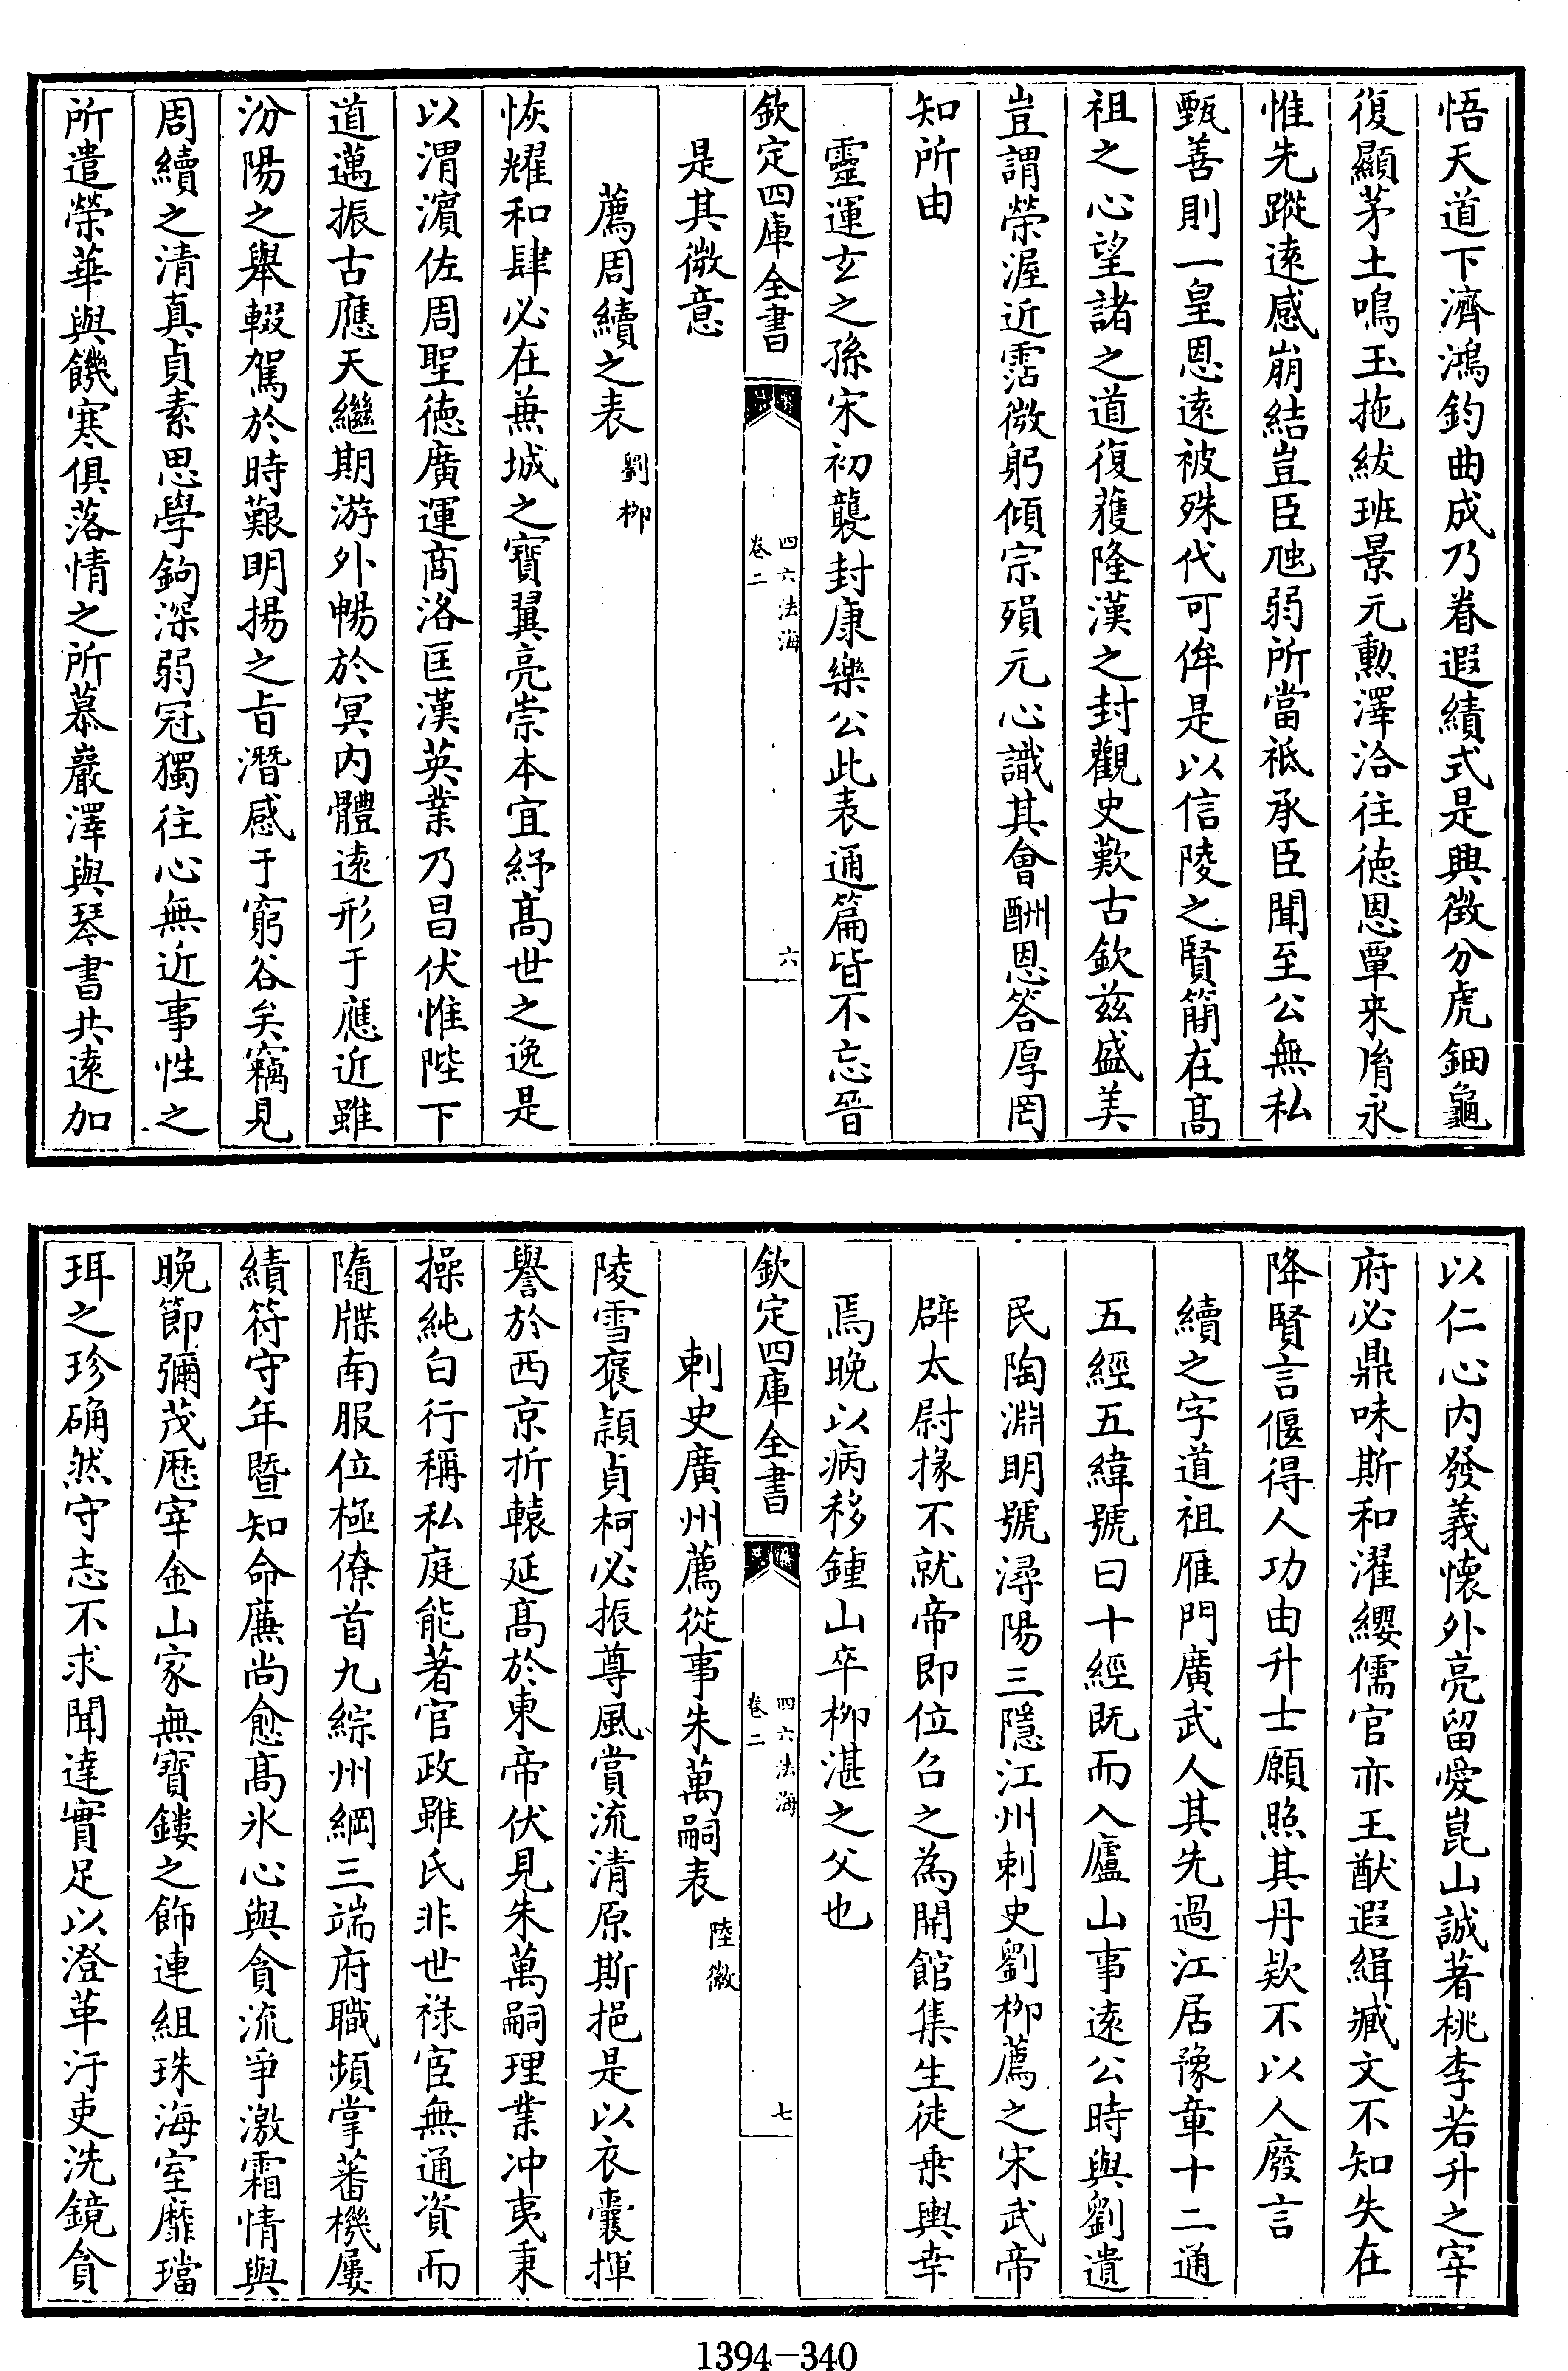 悟天道下濟鴻鈞曲成乃眷遐績式是興徴分虎鈿龜
復顯茅土鳴玉拖紱班景元勲澤洽往徳恩覃来胤永
惟先蹤逺感崩結豈臣尫弱所當祗承臣聞至公無私
甄善則一皇恩逺被殊代可侔是以信陵之賢簡在髙
祖之心望諸之道復獲隆漢之封觀史歎古欽兹盛美
豈謂榮渥近霑微躬傾宗殞元心識其會酬恩答厚罔
知所由
靈運玄之孫宋初襲封康樂公此表通篇皆不忘晉
欽定四庫全書
四六法海
卷二
六
是其微意
薦周續之表
劉柳
恢耀和肆必在兼城之寶翼亮崇本宜紓髙世之逸是
以渭濵佐周聖徳廣運商洛匡漢英業乃昌伏惟陛下
道邁振古應天繼期游外暢於冥内體逺形于應近雖
汾陽之舉輟駕於時艱明揚之㫖潛感于窮谷矣竊見
周續之清真貞素思學鉤深弱冠獨往心無近事性之
所遣榮華與饑寒俱落情之所慕巖澤與琴書共逺加
以仁心内發義懷外亮留愛崑山誠著桃李若升之宰
府必鼎味斯和濯纓儒官亦王猷遐緝臧文不知失在
降賢言偃得人功由升士願照其丹欵不以人廢言
續之字道祖雁門廣武人其先過江居豫章十二通
五經五緯號曰十經既而入廬山事逺公時與劉遺
民陶淵明號潯陽三隱江州刺史劉柳薦之宋武帝
辟太尉掾不就帝即位召之為開館集生徒乗輿幸
焉晚以病移鍾山卒柳湛之父也
欽定四庫全書
四六法海
卷二
七
刺史廣州薦從事朱萬嗣表
陸徽
陵雪褒潁貞柯必振尊風賞流清原斯挹是以衣囊揮
譽於西京折轅延髙於東帝伏見朱萬嗣理業冲夷秉
操純白行稱私庭能著官政雖氏非世禄宦無通資而
隨牒南服位極僚首九綜州綱三端府職頻掌蕃機屢
績符守年暨知命亷尚愈髙氷心與貪流爭激霜情與
晚節彌茂歴宰金山家無寶鏤之飾連組珠海室靡璫
珥之珍确然守志不求聞達實足以澄革汙吏洗鏡貪
1394-340